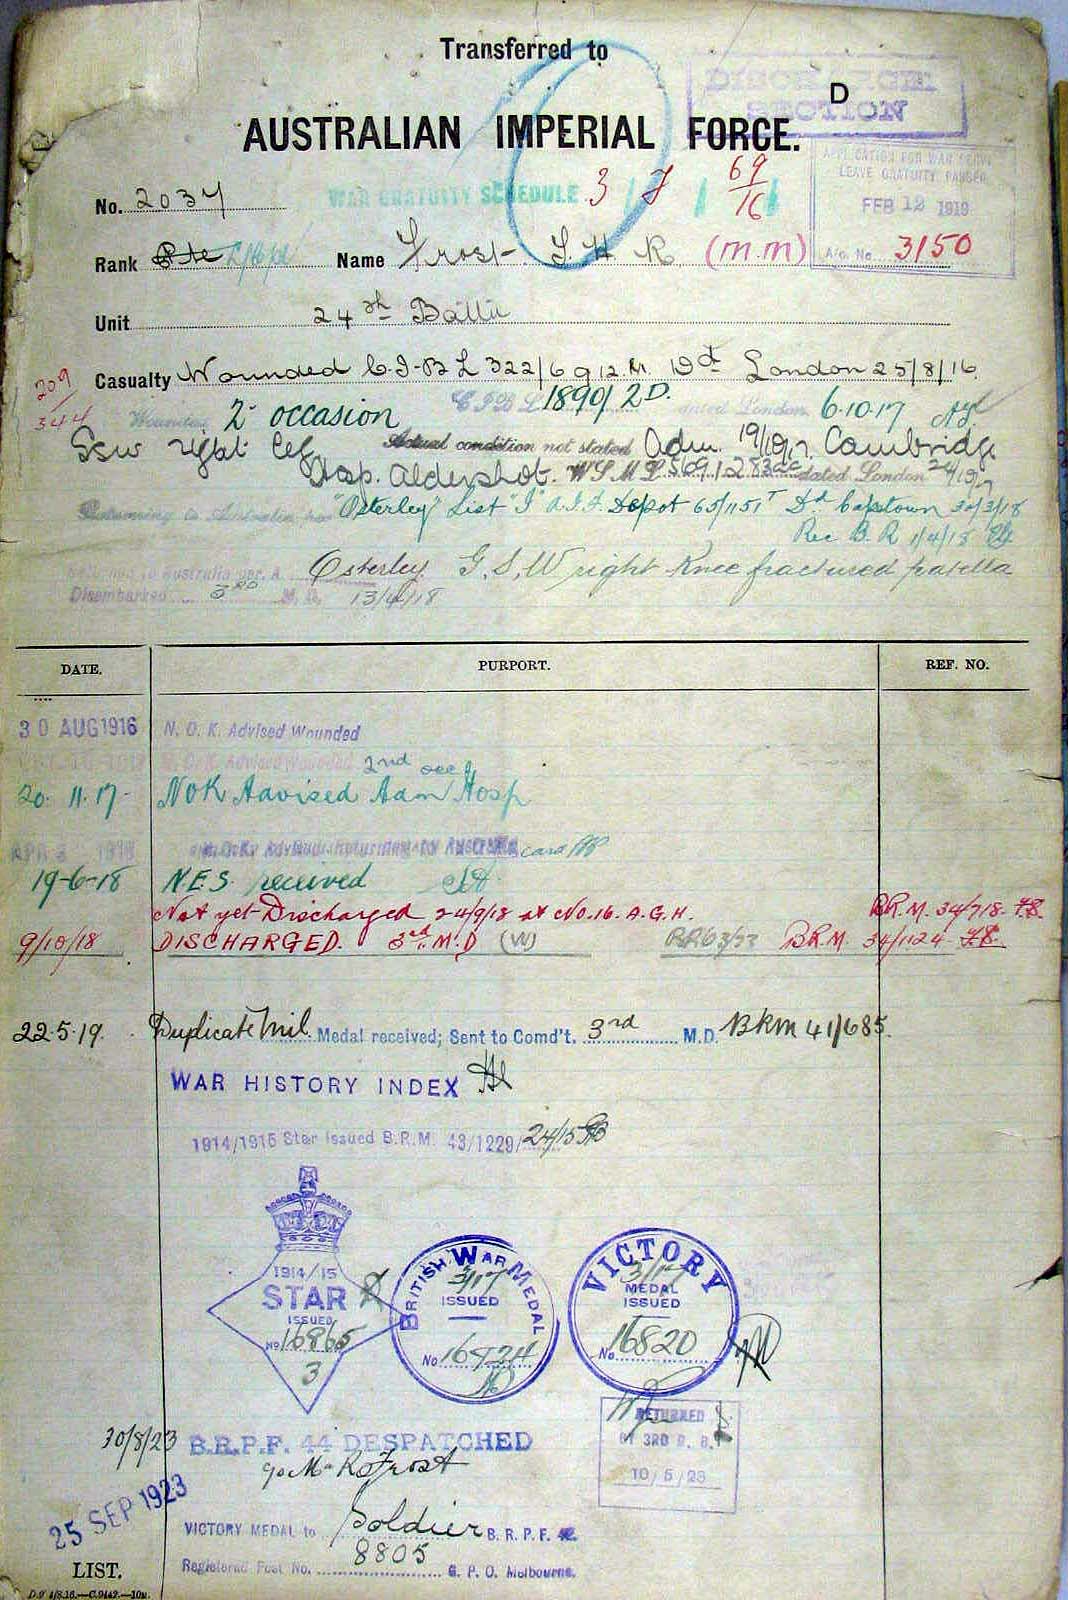 Transferred to
DISCHARGE SECTION
D
AUSTRALIAN IMPERIAL FORCE.
No. 2034
WAR GRATUITY SCHEDULE 3 / 7 / 69/16
APPLICATION FOR WAR SERVICE
LEAVE GRATUITY PASSED
FEB 12 1919
A/c. No. 3150
Rank Pte L/Cpl Name Frost J. H R (m.m)
Unit 24th Battn
Casualty Wounded C.I.B L 322/6 9 12 M. Dd London 25/8/16.
209
344
Wounded 2nd occasion C.I.B L 1890/2D. dated London 6.10.17
Gsw right leg Actual condition not stated Adm. 19/10/17 Cambridge
Hosp. Aldershot. W S M L dated London
Returning to Australia per "Osterley" List "I" A.I.F. Depot 65/1151T Dd Capetown 30/3/18
Rec B.R 1/4/18
Returned to Australia per Osterley G.S.W right Knee fractured patella
Disembarked 3RD M.D. 13/4/18
DATE. PURPORT. REF. NO.
30 AUG 1916 N.O.K. Advised Wounded
N.O.K. Advised Wounded 2nd occ
20.11.17 NOK Advised Adm Hosp
APR 3 1918 card
19-6-18 N.E.S. received
Not yet Discharged 24/9/18 at No.16. A.G.H. B.R.M. 34/718.
9/10/18 DISCHARGED. 3rd. M.D (W) BRM 34/1124
22.5.19. Duplicate Mil. Medal received; Sent to Comd't. 3rd M.D. BRM 41/685.
WAR HISTORY INDEX
1914/1915 Star Issued B.R.M. 43/1229/24/15
1914/15
STAR
ISSUED
No 16865
3
BRITISH WAR MEDAL
3/17
ISSUED
No 16724
VICTORY
3/17
MEDAL
ISSUED
No. 16820
RETURNED
BY 3RD
10/5/23
30/8/23 B.R.P.F. 44 DESPATCHED
Mr R Frost
25 SEP 1923
VICTORY MEDAL to Soldier B. R. P. F.
Registered Post No. 8805 G. P. O. Melbourne.
LIST.
D.9 4/8.16.—C.9442.—10m.